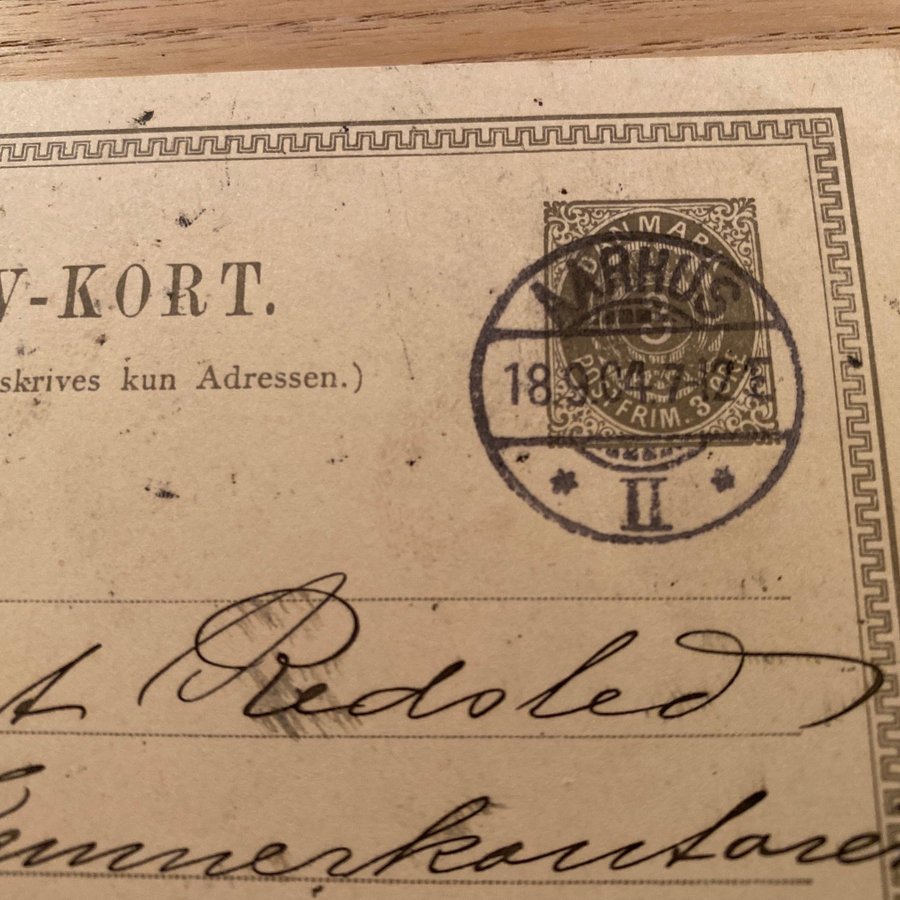 V-KORT.
skrives kun Adressen.)
DANMARK
3
POSTFRIM. 3 ØRE
AARHUS
18.9.04 7-12 F
* II *
t Redsled
Kemnerkontoret